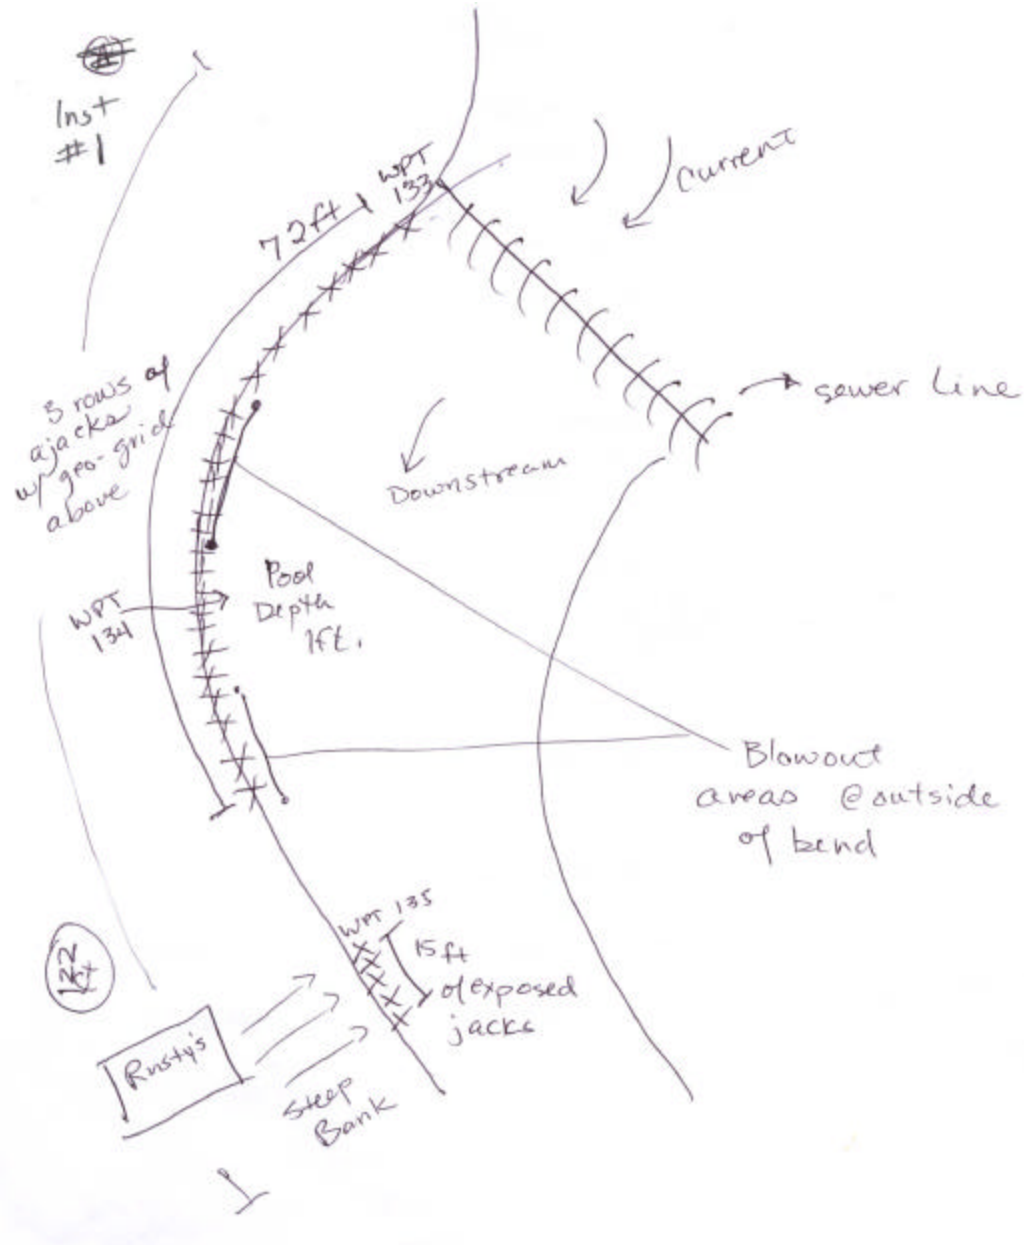 Inst
#1
WPT
133
72ft
Current
sewer Line
3 rows of
ajacks
w/ geo-grid
above
Downstream
Pool
Depth
1ft.
WPT
134
Blowout
areas @outside
of bend
WPT 135
15 ft
of exposed
jacks
122
ft
Rusty's
Steep
Bank